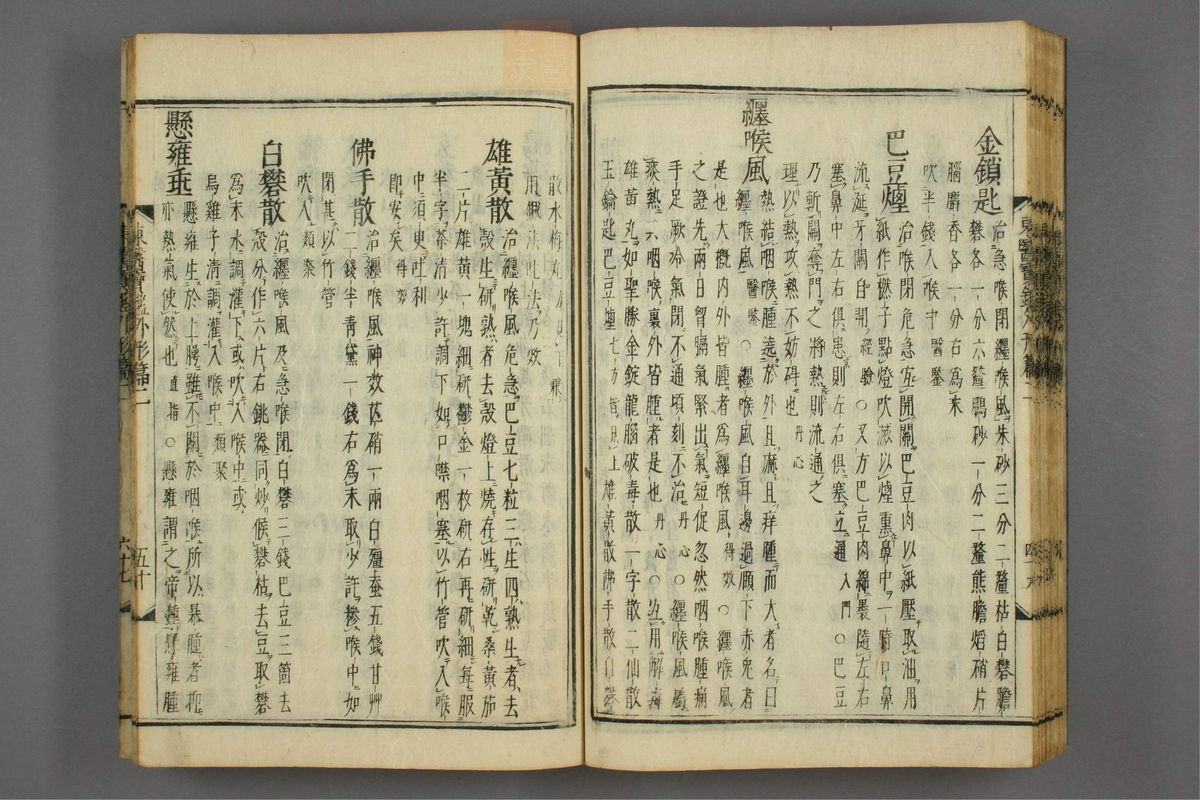 金鎖匙 治急喉閉纏喉風朱砂三分二釐枯白礬膽
礬各一分六釐鵬砂一分二釐熊膽焰硝片
腦麝香各一分右爲末
吹半錢入喉中 醫鑒
巴豆煙 治喉閉危急宜開關巴豆肉以紙壓取油用
紙作撚子點燈吹滅以煙熏鼻中一時口鼻
流涎牙關自開 經驗 ○又方巴豆肉綿裹隨左右
塞鼻中左右俱患則左右俱塞立通 入門 ○巴豆
乃斬關奪門之將熱則流通之
理以熱攻熱不妨碍也 丹心
纏喉風 熱結咽喉腫遶於外且麻且痒腫而大者名曰
纏喉風 醫鑒 ○纏喉風自耳邊過頤下赤色者
是也大槩内外皆腫者爲纏喉風 得效 ○纏喉風
之證先兩日胷膈氣緊出氣短促忽然咽喉腫痛
手足厥冷氣閉不通頃刻不治 丹心 ○纏喉風屬
痰熱 咽喉裏外皆腫者是也 丹心 ○宜用解毒
雄黃丸如聖勝金錠龍腦破毒散一字散二仙散
玉鑰匙巴豆煙 七方皆見上 雄黃散佛手散白礬
散水梅丸
用鵝法吐法乃效
雄黃散 治纏喉風危急巴豆七粒三生四熟生者去
殼生研熟者去殼燈上燒存性研乾桑黃茹
二片雄黃一塊細研鬱金一枚研右再研細每服
半字茶清少許調下如口噤咽塞以竹管吹入喉
中須臾吐利
卽安矣 得效
佛手散 治纏喉風神效芒硝一兩白殭蚕五錢甘艸
二錢半青黛一錢右爲末取少許摻喉中如
閉甚以竹管
吹入 類聚
白礬散 治纏喉風及急喉閉白礬三錢巴豆三箇去
殼分作六片右銚器同炒候礬枯去豆取礬
爲末水調灌下或吹入喉中或
烏雞子清調灌入喉中 類聚
懸雍垂 懸雍生於上腭雖不關於咽喉所以暴腫者抑
亦熱氣使然也 直指 ○懸雍謂之帝鍾懸雍腫
東醫寶鑑外形篇二
五十